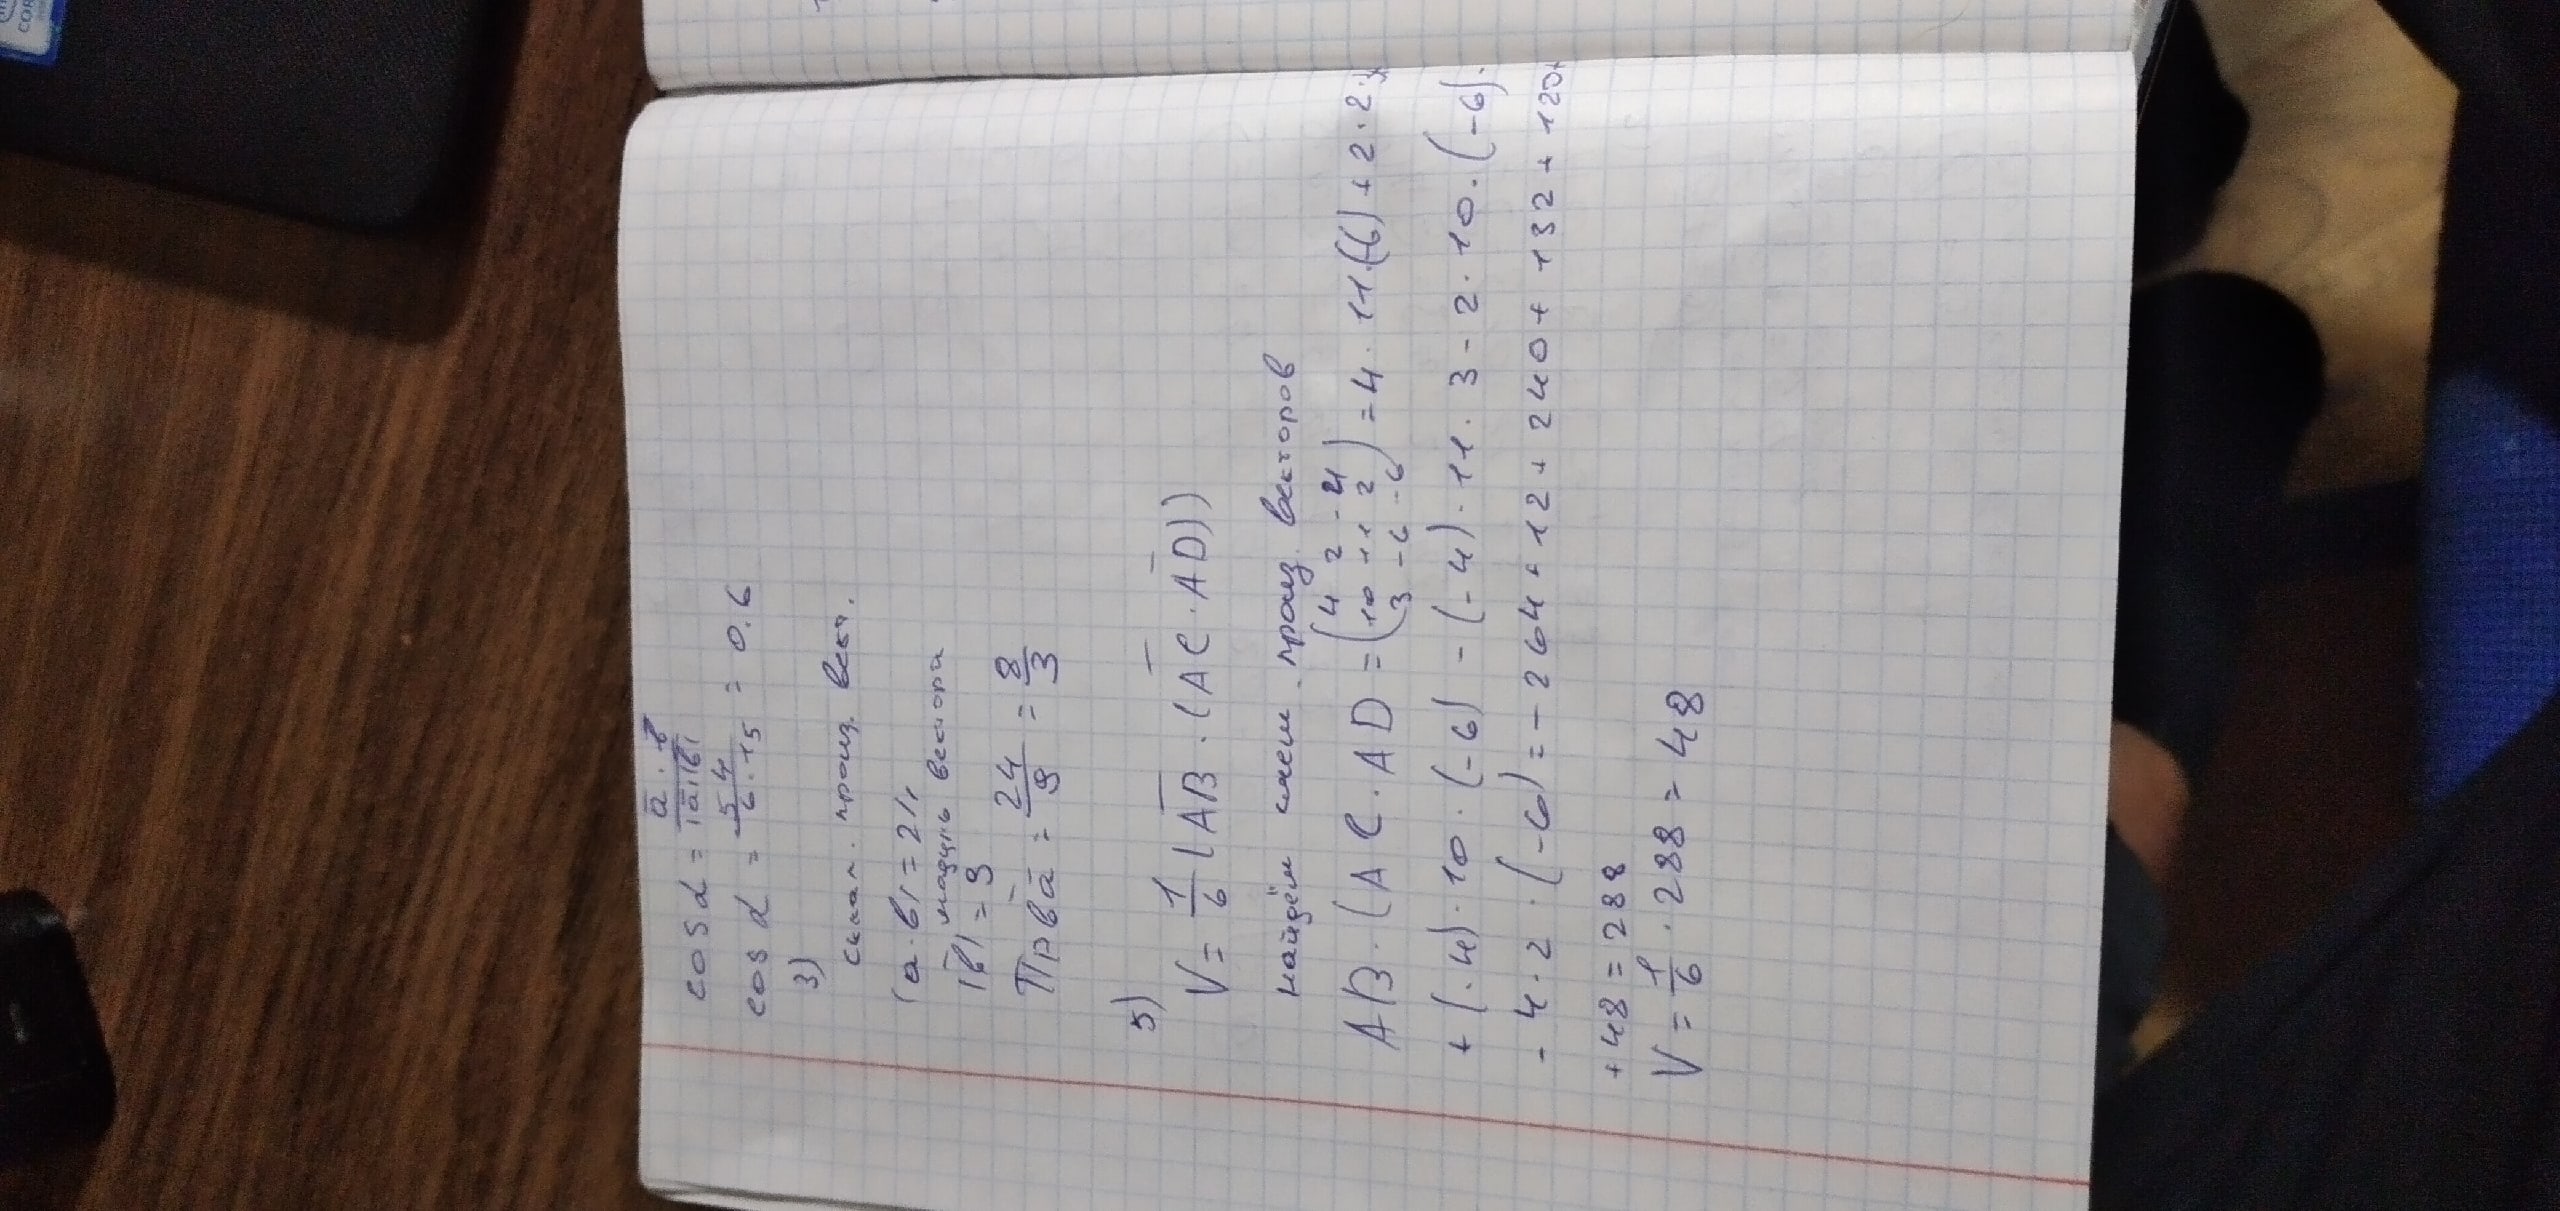 cos α = a̅ · b̅ / |a̅|·|b̅|
cos α = 54 / 6·15 = 0.6
3)
скал. произ. вект.
(a·b) = 24
модуль вектора
|b̅| = 9
Пр b̅ a̅ = 24/9 = 8/3
5)
V = 1/6 (A̅B̅ · (A̅C̅ · A̅D̅))
найдём смеш. произ. векторов
AB · (AC · AD = (4 2 -4
10 11 2
3 -6 -6) = 4 · 11·(-6) + 2 · 2 · 3
+ (-4) · 10 · (-6) - (-4) · 11 · 3 - 2 · 10 · (-6) ·
- 4 · 2 · (-6) = - 264 + 12 + 240 + 132 + 120 +
+ 48 = 288
V = 1/6 · 288 = 48